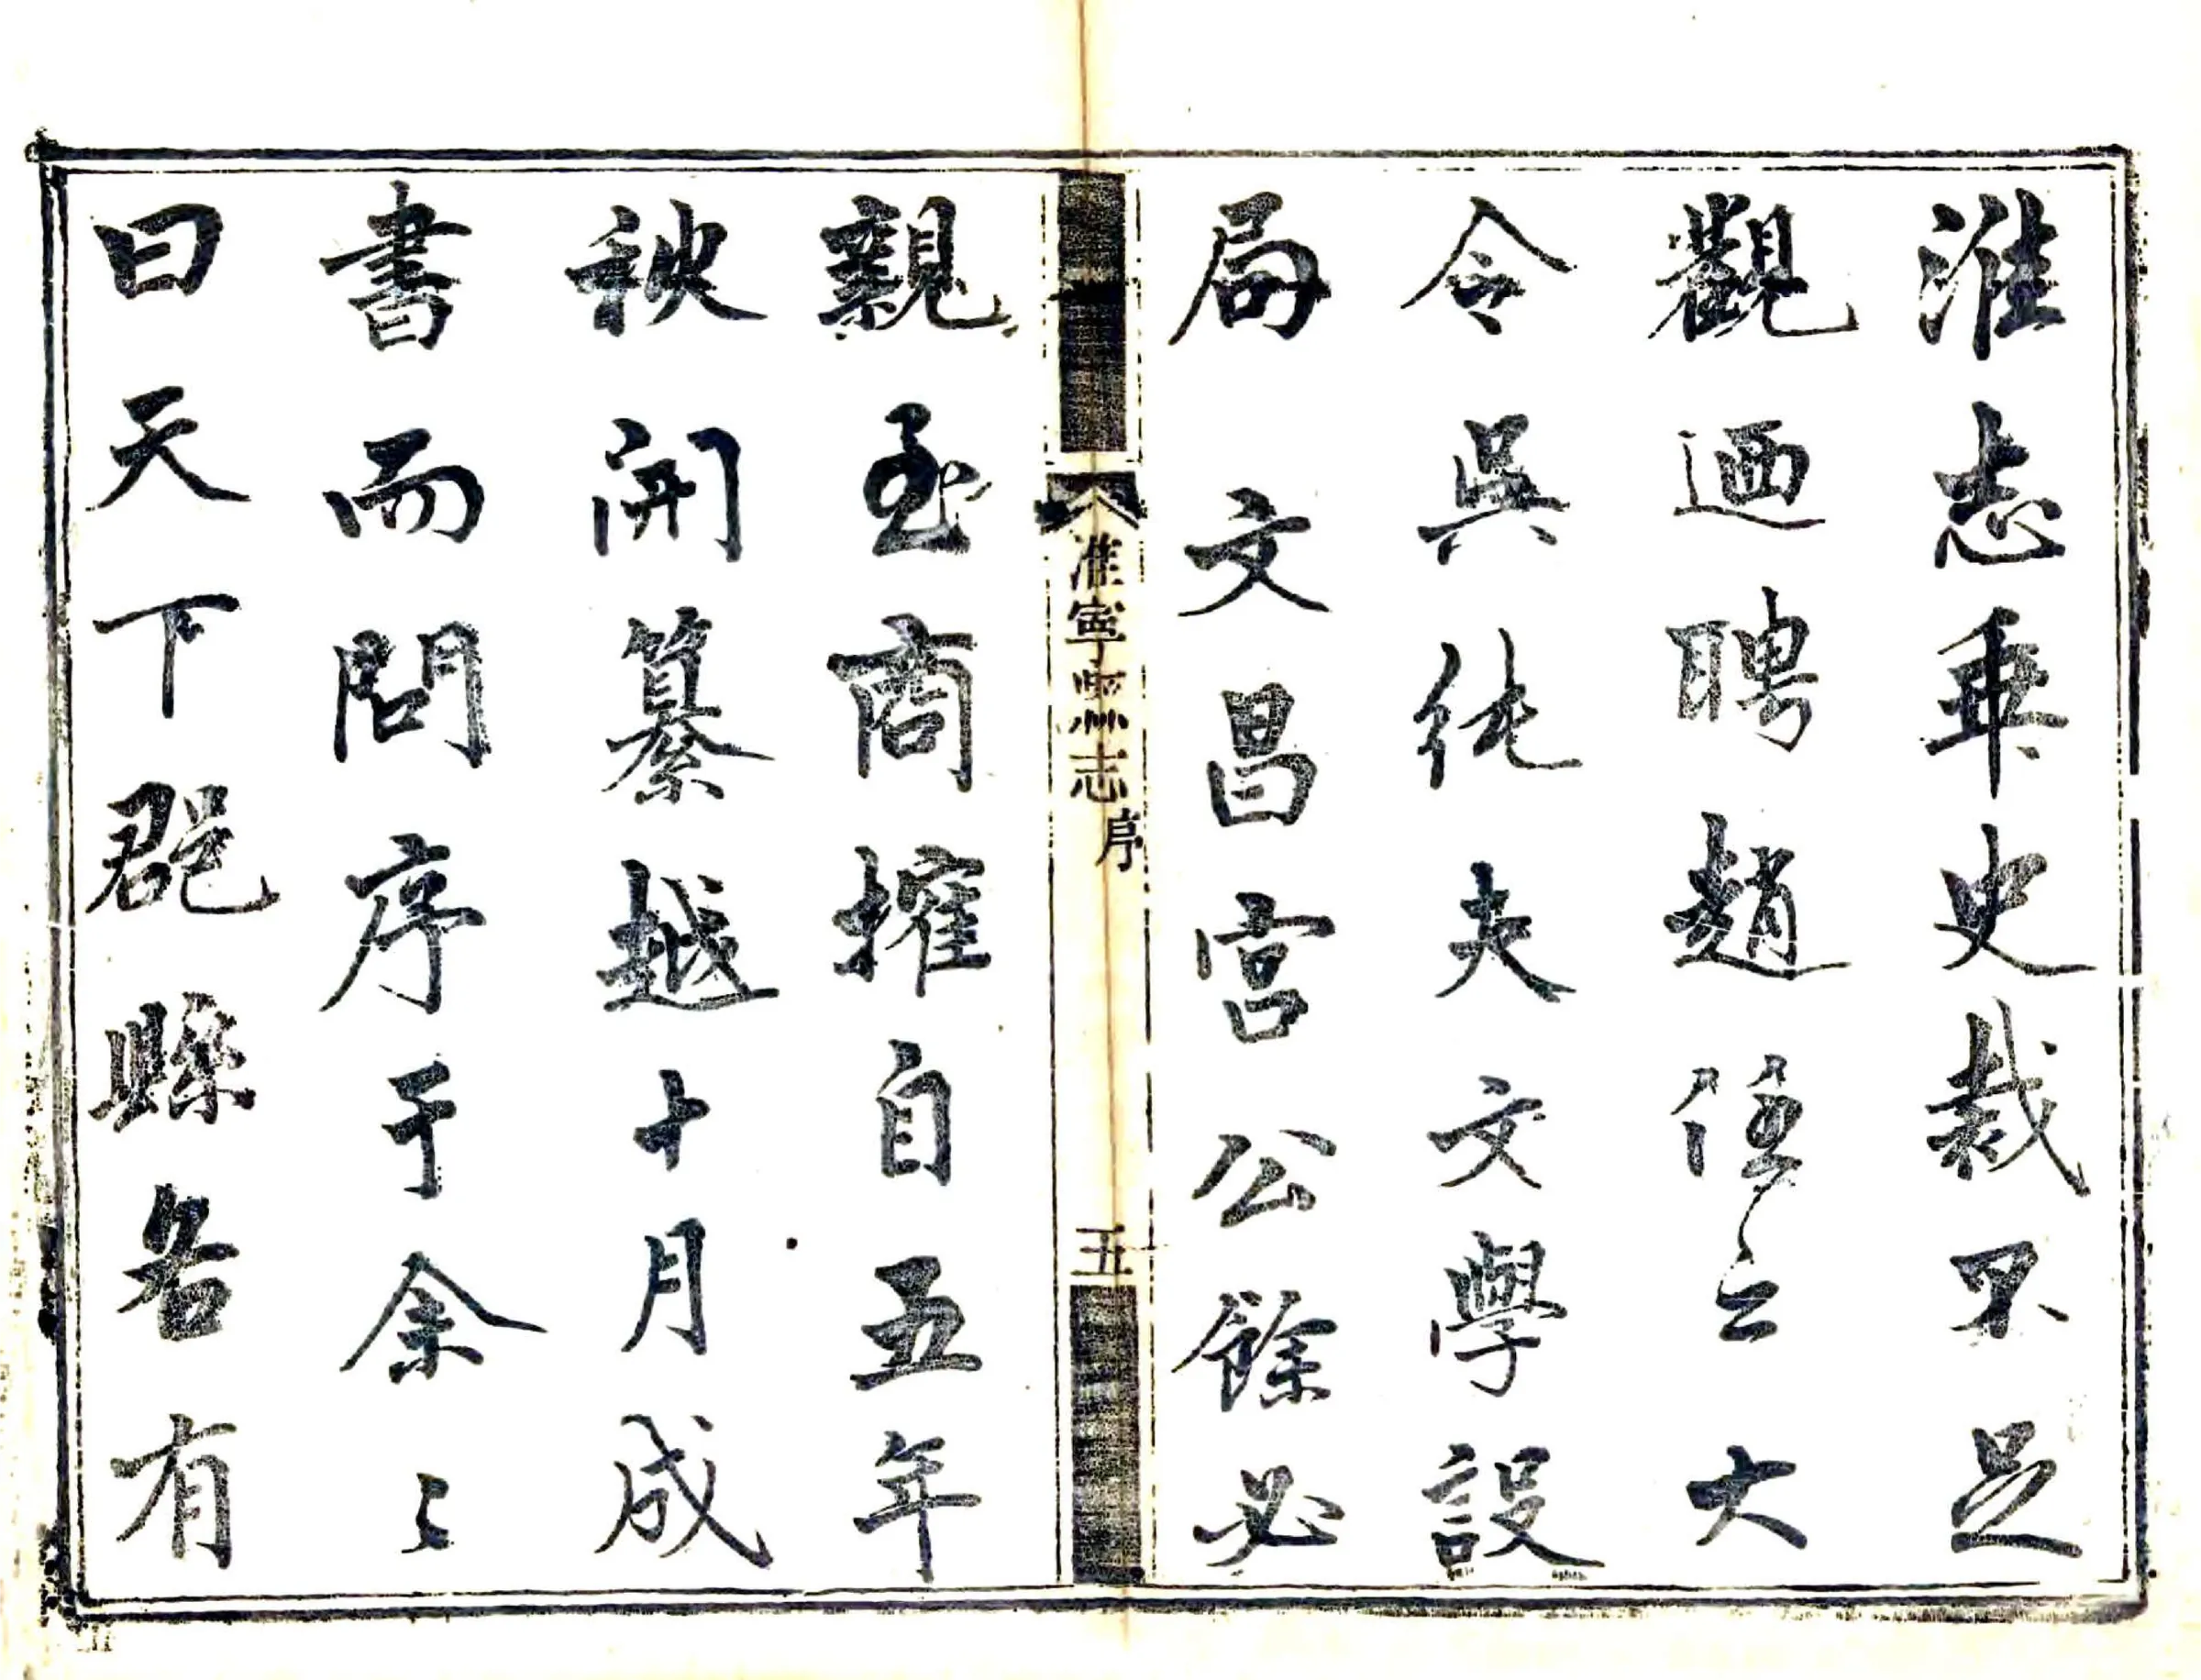 淮志乖史裁不足
觀迺聘趙俓之大
令吳純夫文學設
局文昌宮公餘必
淮寧縣志
序
五
親至商搉自五年
秧開纂越十月成
書而問序于余〻
曰天下郡縣各有